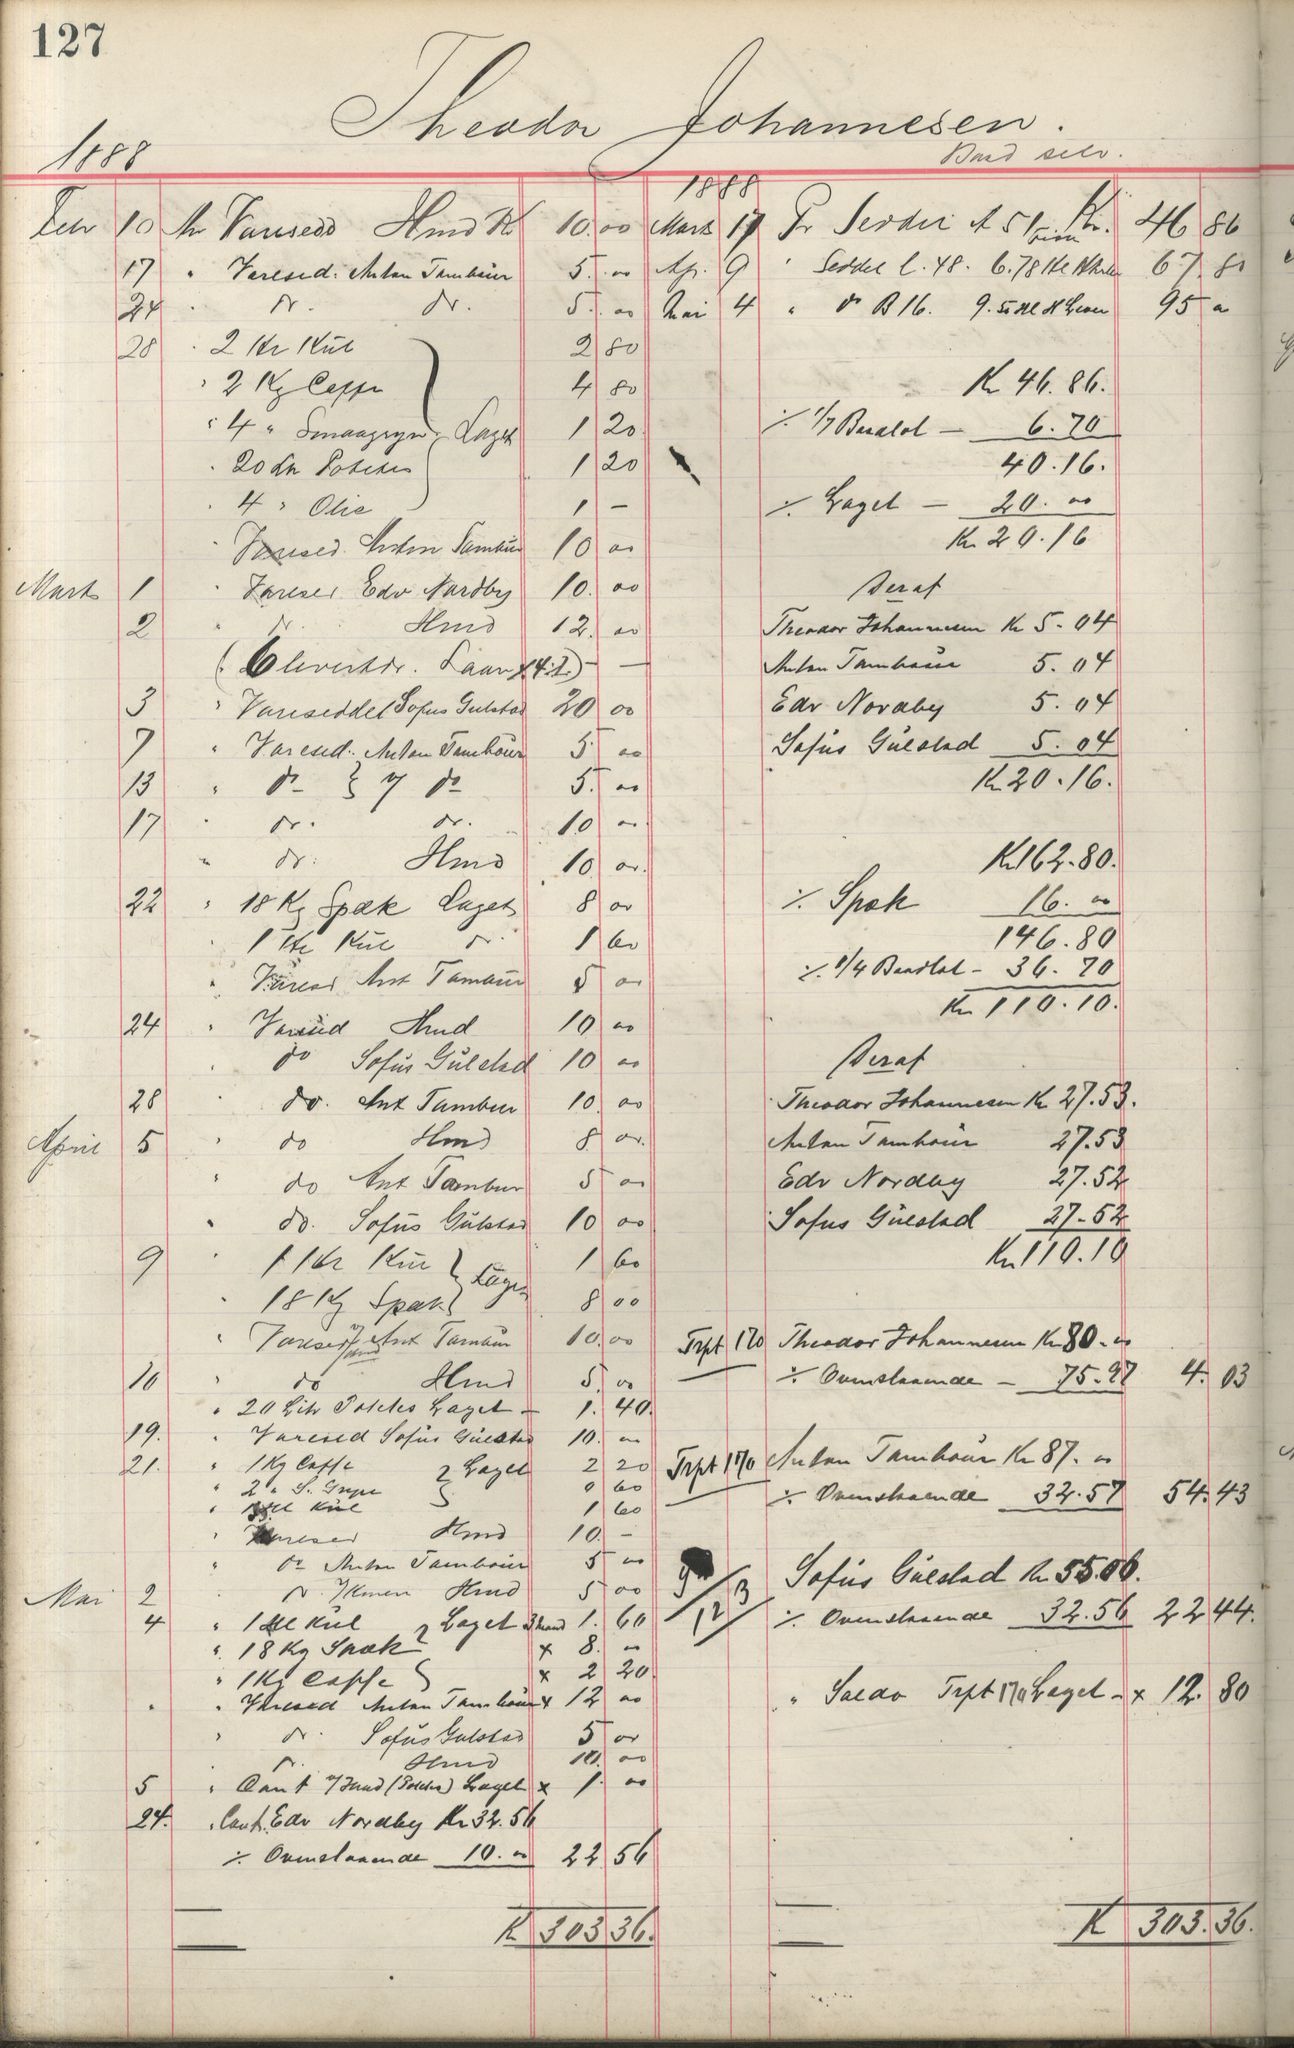 127
Theodor Johannesen.
Baad selv.
1888
Febr 10 An Varesed Hmd Kr 10.00
17 " Varesed. Anton Tambour 5.00
24 " do. do. 5.00
28 " 2 Hl Kul 2 80
" 2 Kg Caffe 4 80
" 4 " Smaagryn Laget 1 20
" 20 Ltr Potetes 1 20
" 4 " Olie 1 –
" Varesed. Anton Tambur 10 00
Marts 1 " Varesed Edv Nordby 10.00
2 " do Hmd 12.00
Laan
3 " Vareseddel Sofus Gulstad 20 00
7 " Varesed. Anton Tambour 5 00
13 " do do 5.00
17 " do. do. 10 00
" do. Hmd 10 00.
22 " 18 Kg Spæk Laget 8 00
" 1 Hl Kul do 1 60
" Varesed Ant Tambur 5 00
24 " Varesed Hmd 10 00
" do Sofus Gulstad 10 00
28 " do. Ant Tambur 10.00
April 5 " do Hmd 8 00.
" do Ant Tambur 5 00
" do. Sofus Gulstad 10 00
9 " 1 Hl Kul 1 60
" 18 Kg Spæk Laget 8 00
" Varesed Ant Tambur 10.00
10 " do Hmd 5.00
" 20 Litr Potetes Laget – 1.40.
19. " Varesed Sofus Gulstad 10.00
21. " 1 Kg Caffe Laget 2 20
" 2 " S. Gryn 0 60
" Hl Kul 1 60
" Varesed Hmd 10.–
" do Anton Tambour 5 00
Mai 2 " do Hmd 5 00
4 " 1 Hl Kul Laget 1.60
" 18 Kg Spæk x 8.00
" 1 Kg Caffe x 2 20.
" " Varesed Anton Tambour x 12 00
" do. Sofus Gulstad 5 00
" do. Hmd 10.00
5 " Cont Laget x 1.00
24. " Cont. Edv Nordby Kr 32.56
% Ovenstaaende 10.00 22 56
K 303 36.
1888
Marts 17 Pr Seddel A 51 Kr. 46 86
Apr. 9 " Seddel C. 48. 6.78 Hl 67 80
Mai 4 " do B 16. 9.50 Hl Lever 95 00
Kr 46.86.
% 1/7 Baadlot – 6.70
40.16.
% Laget – 20.00
Kr 20.16
Deraf
Theodor Johannesen Kr 5.04
Anton Tambour 5.04
Edv Nordby 5.04
Sofus Gulstad 5.04
Kr 20.16.
Kr 162.80.
% Spæk 16.00
146.80
% 1/4 Baadlot – 36.70
Kr 110.10.
Deraf
Theodor Johannesen Kr 27.53.
Anton Tambour 27.53
Edv Nordby 27.52
Sofus Gulstad 27.52
Kr 110.10
Trpt 170 Theodor Johannesen Kr 80.00
% Ovenstaaende – 75.97 4.03
Trpt 170 Anton Tambour Kr 87.00
% Ovenstaaende 32.57 54.43
Sofus Gulstad Kr 55.00.
% Ovenstaaende 32.56 22 44.
" Saldo Trpt 170 Laget – x 12.80
K 303.36.